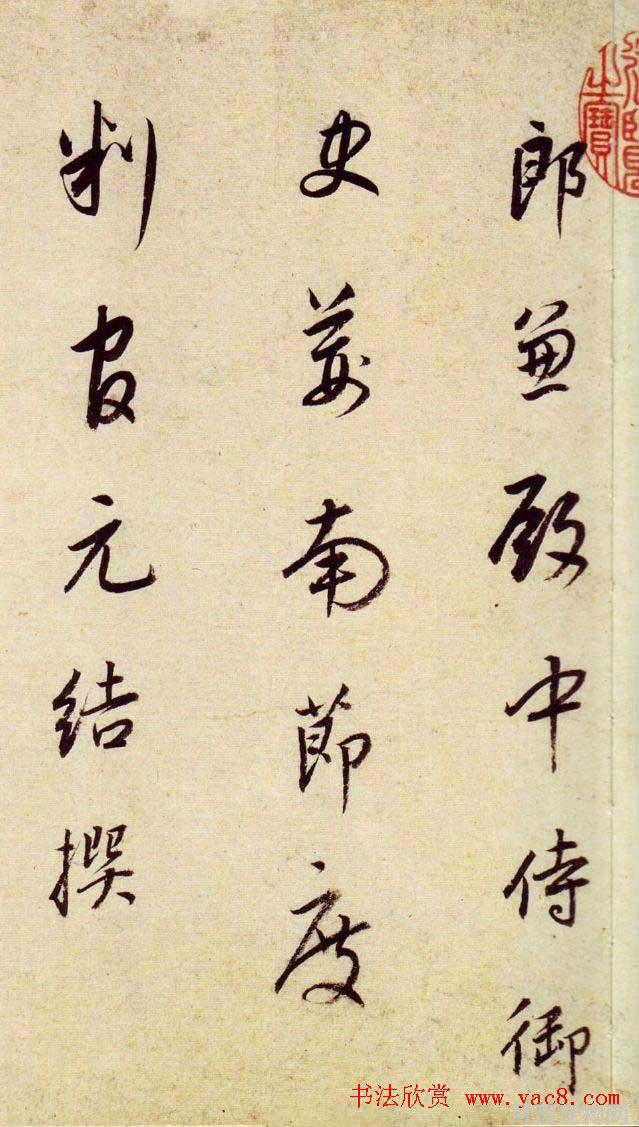 郎兼殿中侍御
史荊南節度
判官元結撰
书法欣赏 www.yac8.com